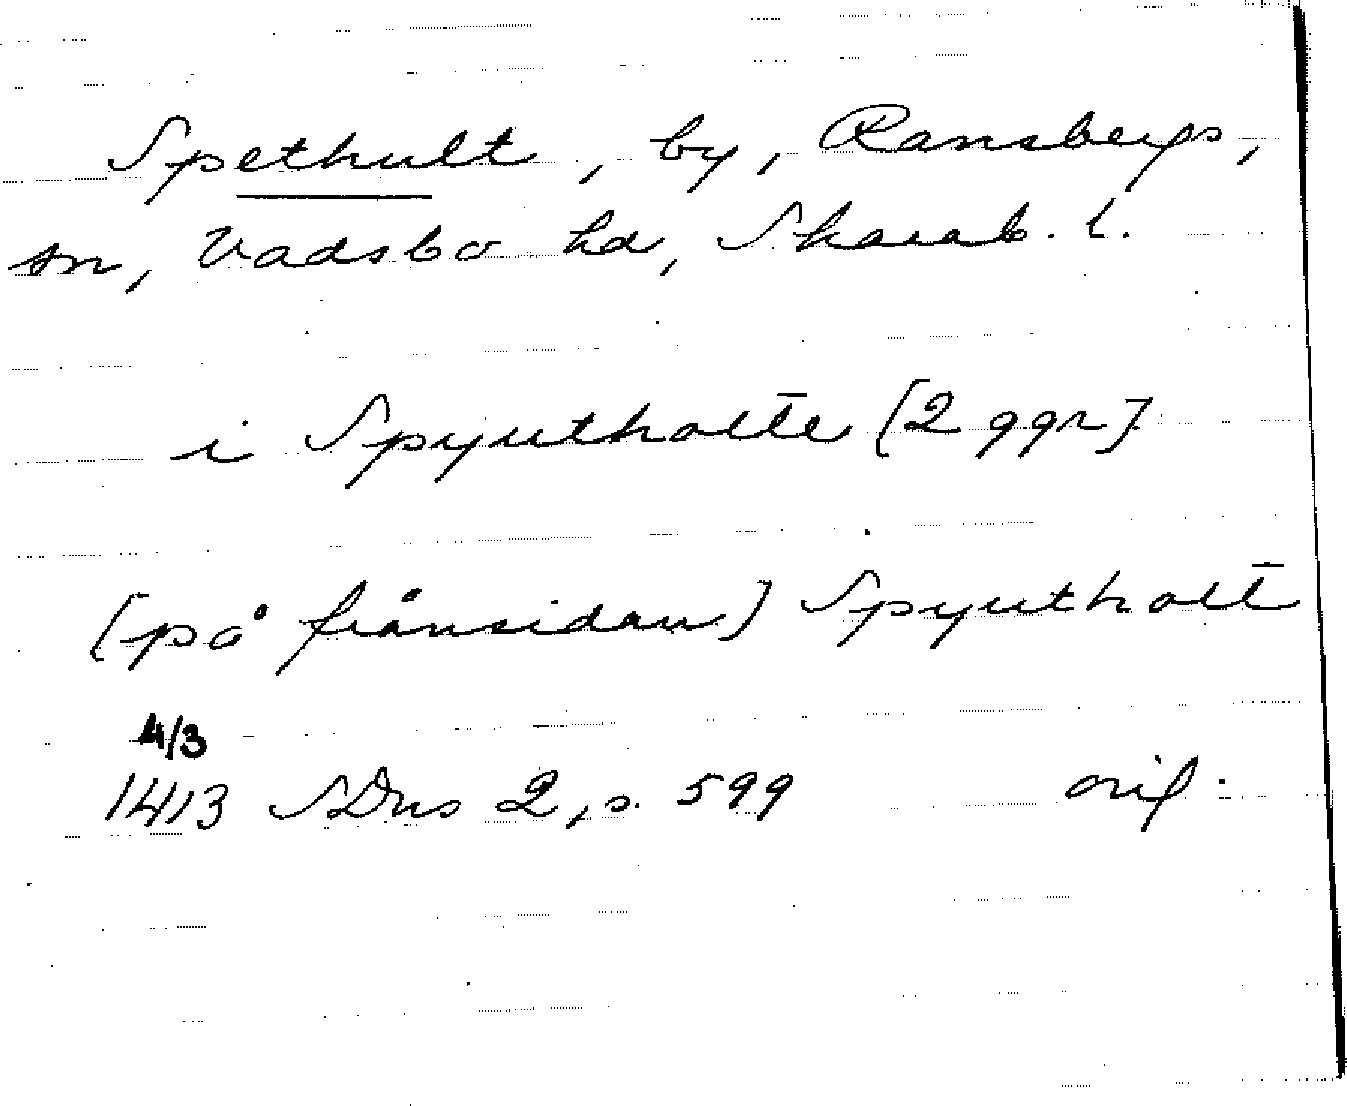 Spethult, by, Ransbergs,
sn, Vadsbo hd, Skarab. l.
i Spyutholte [2 ggr]
[på frånsidan] Spyutholt
4/3
1413 SDns 2, s. 599 orig.